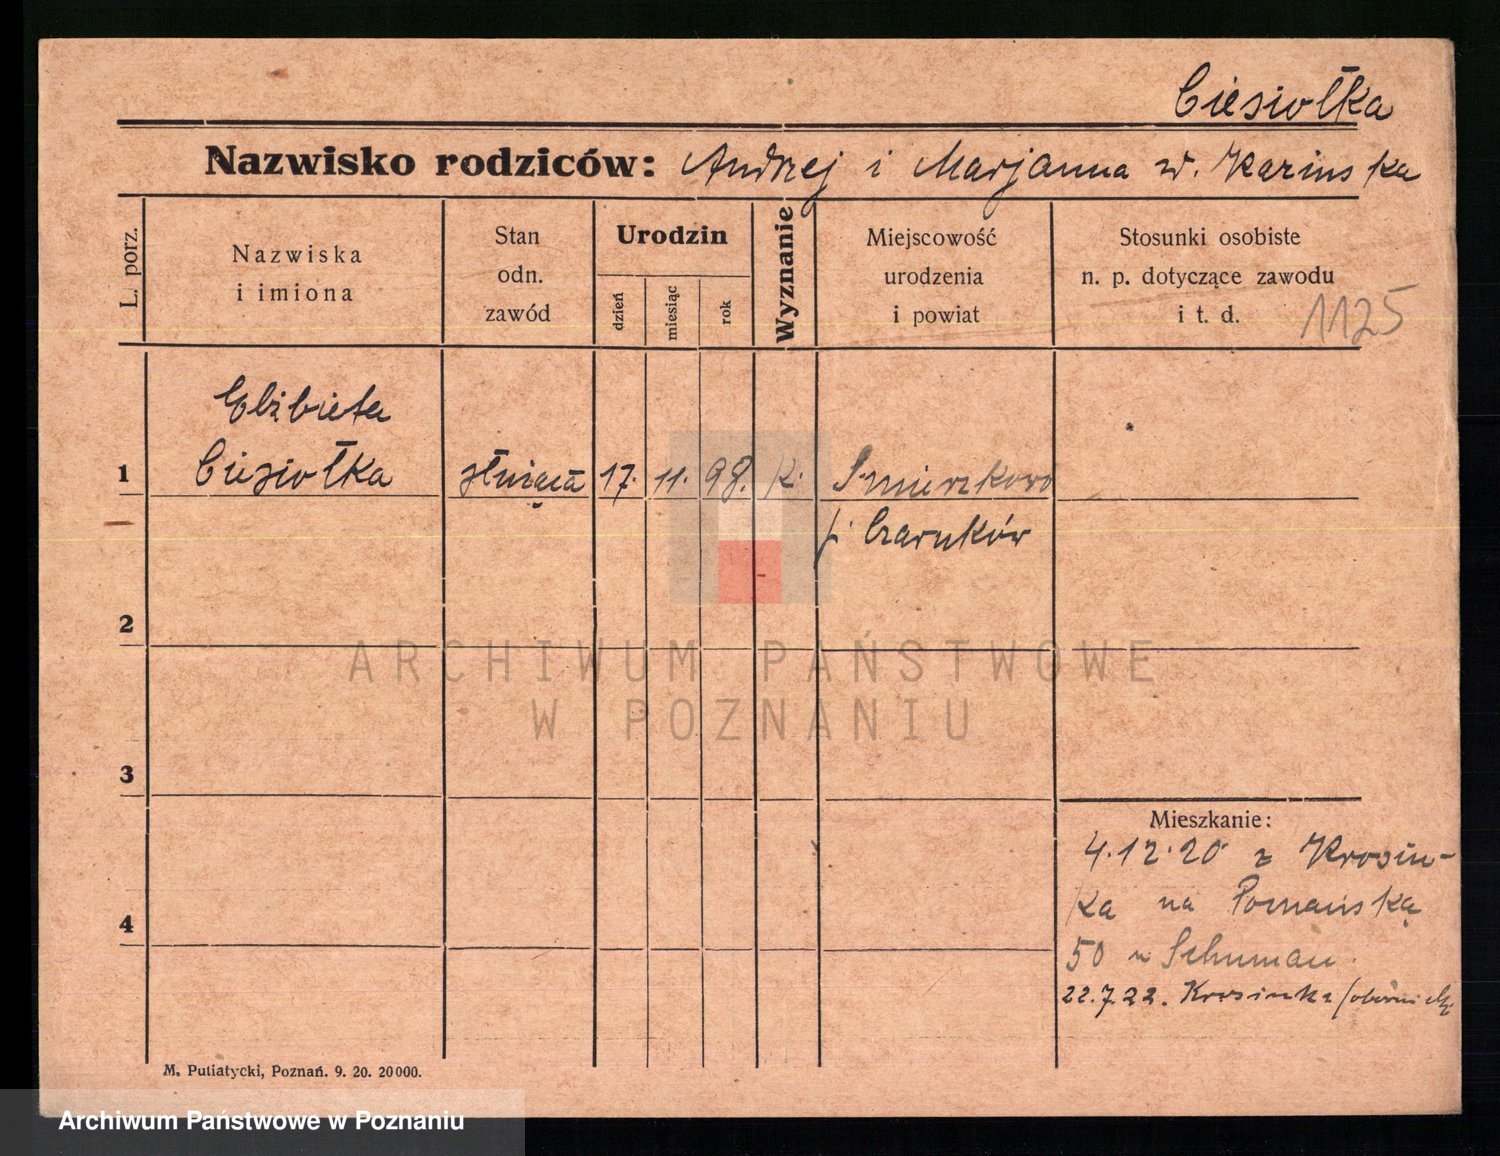 Ciesiołka
Nazwisko rodziców: Andrzej i Marjanna z d. Kazinska
L. porz.
Nazwiska
i imiona
Stan
odn.
zawód
Urodzin
dzień
miesiąc
rok
Wyznanie
Miejscowość
urodzenia
i powiat
Stosunki osobiste
n. p. dotyczące zawodu
i t. d.
1125
Elżbieta
1 Ciesiołka służąca 17. 11. 98. k. Śmieszkowo
p. Czarnków
2
3
4
Mieszkanie:
4.12.20 z Krosin-
ka na Poznańską
50 u Schuman.
22.7.22. Krosinko
M. Putiatycki, Poznań. 9. 20. 20000.
ARCHIWUM PAŃSTWOWE
W POZNANIU
Archiwum Państwowe w Poznaniu